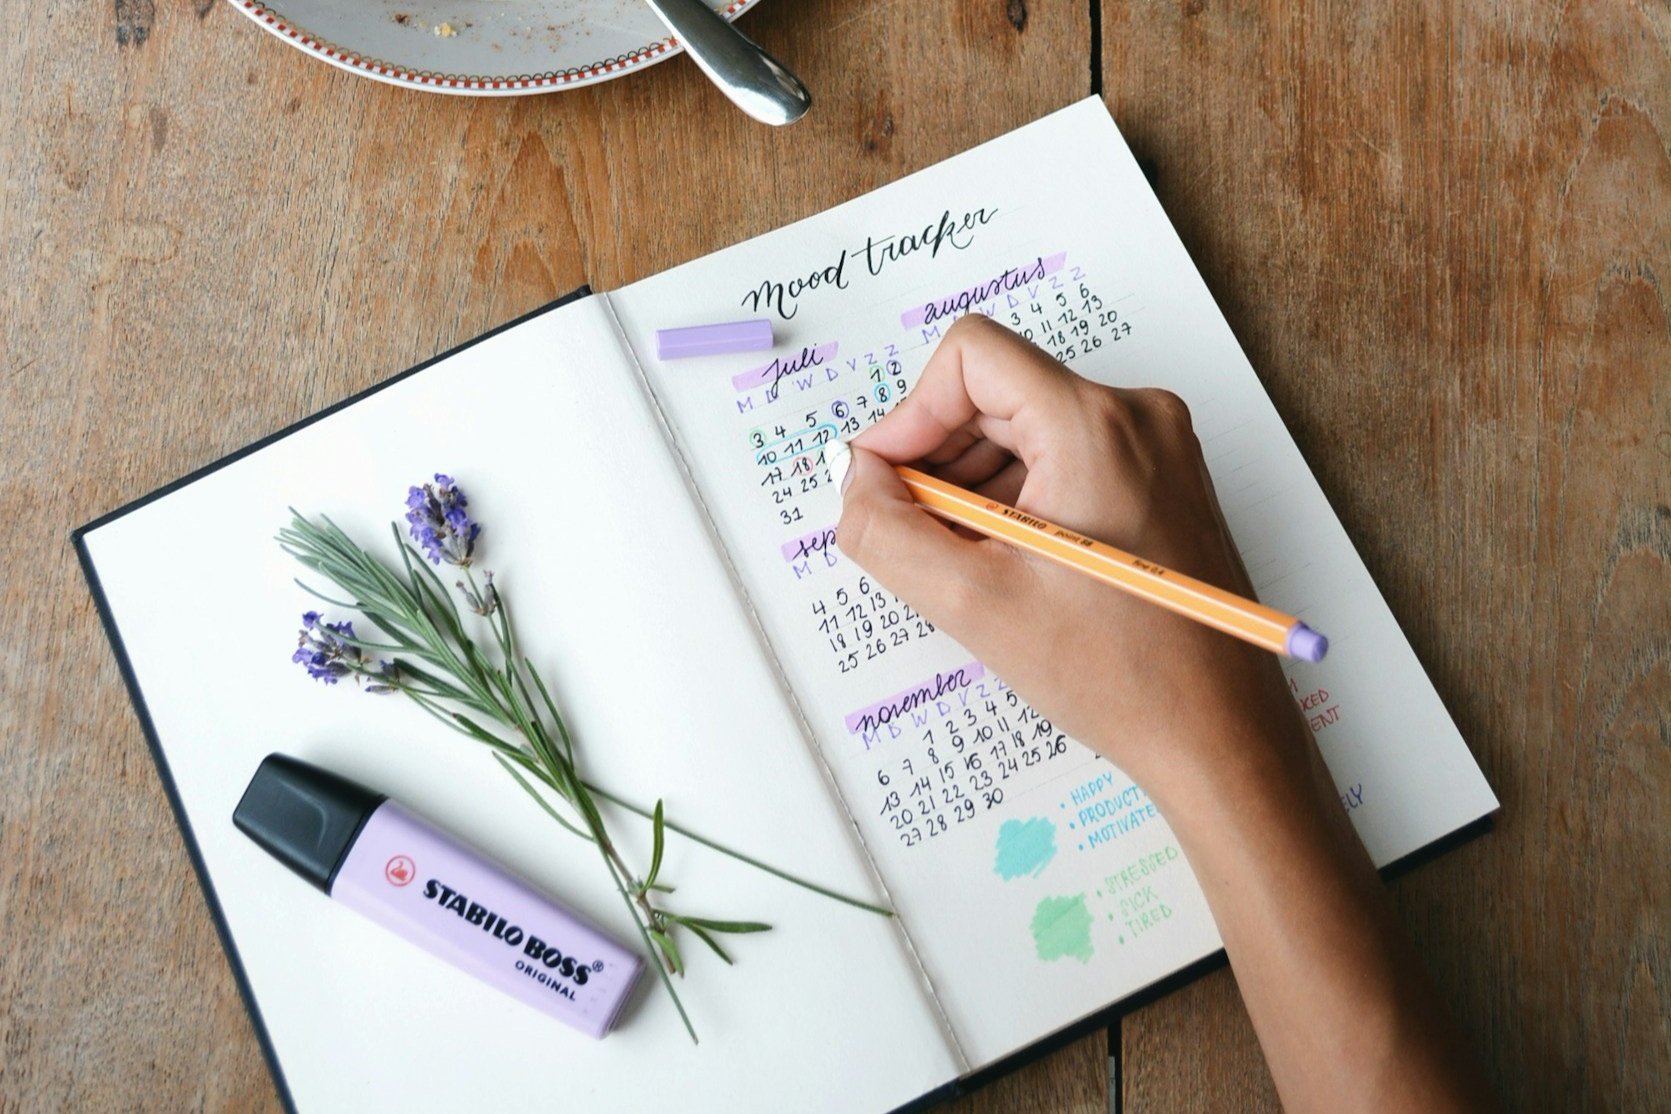 Mood tracker
juli
M D W D V Z Z
1 2
3 4 5 6 7 8 9
10 11 12 13 14
17 18 1
24 25 2
31
augustus
M W D V Z Z
3 4 5 6
10 11 12 13
18 19 20
25 26 27
sep
M D
4 5 6
11 12 13
18 19 20 2
25 26 27 28
november
M D W D V Z Z
1 2 3 4 5
6 7 8 9 10 11 12
13 14 15 16 17 18 19
20 21 22 23 24 25 26
27 28 29 30
• HAPPY
• PRODUCT
• MOTIVATE
• STRESSED
• SICK
• TIRED
KED
ENT
ELY
STABILO point 88 fine 0,4
STABILO BOSS®
ORIGINAL